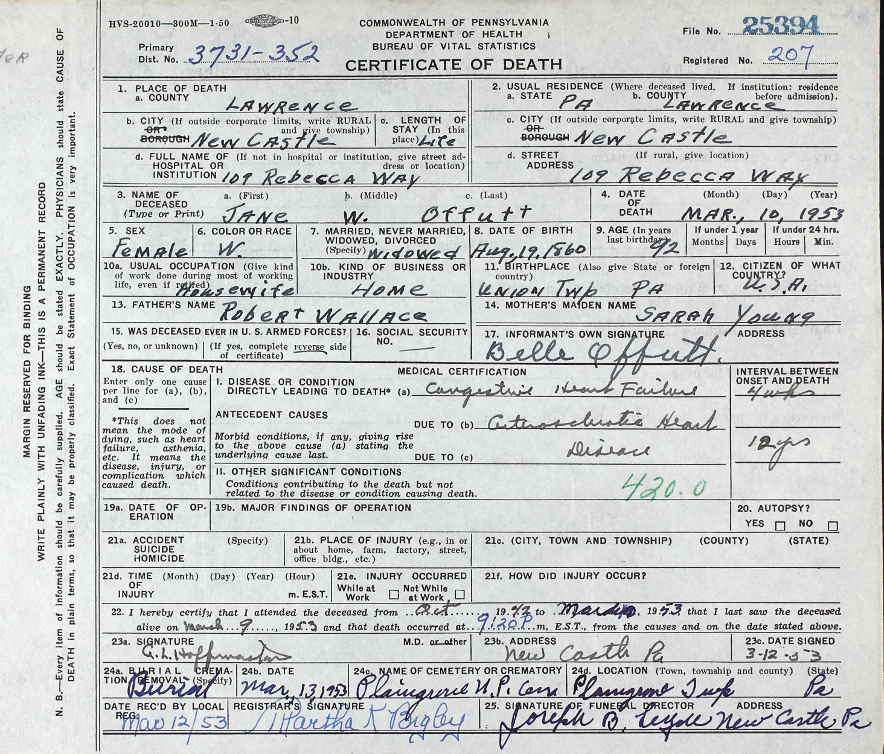 HVS-20010—300M—1-50 -10
COMMONWEALTH OF PENNSYLVANIA
DEPARTMENT OF HEALTH
BUREAU OF VITAL STATISTICS
CERTIFICATE OF DEATH
Primary
Dist. No. 3731-352
File No. 25394
Registered No. 207
MARGIN RESERVED FOR BINDING
WRITE PLAINLY WITH UNFADING INK—THIS IS A PERMANENT RECORD
N. B.—Every item of information should be carefully supplied. AGE should be stated EXACTLY. PHYSICIANS should state CAUSE OF
DEATH in plain terms, so that it may be properly classified. Exact Statement of OCCUPATION is very important.
1. PLACE OF DEATH
a. COUNTY LAWRENCE
2. USUAL RESIDENCE (Where deceased lived. If institution: residence before admission).
a. STATE PA b. COUNTY LAWRENCE
b. CITY (If outside corporate limits, write RURAL
OR and give township)
BOROUGH NEW CASTLE
c. LENGTH OF
STAY (In this
place) LIFE
c. CITY (If outside corporate limits, write RURAL and give township)
OR
BOROUGH NEW CASTLE
d. FULL NAME OF (If not in hospital or institution, give street ad-
HOSPITAL OR dress or location)
INSTITUTION 109 REBECCA WAY
d. STREET (If rural, give location)
ADDRESS 109 REBECCA WAY
3. NAME OF DECEASED (Type or Print)
a. (First) b. (Middle) c. (Last)
JANE W. OFFUTT
4. DATE OF DEATH (Month) (Day) (Year)
MAR., 10, 1953
5. SEX
FEMALE
6. COLOR OR RACE
W.
7. MARRIED, NEVER MARRIED,
WIDOWED, DIVORCED
(Specify) WIDOWED
8. DATE OF BIRTH
Aug, 19, 1860
9. AGE (In years
last birthday) 92
If under 1 year
Months Days
If under 24 hrs.
Hours Min.
10a. USUAL OCCUPATION (Give kind
of work done during most of working
life, even if retired) HOUSEWIFE
10b. KIND OF BUSINESS OR
INDUSTRY
HOME
11. BIRTHPLACE (Also give State or foreign
country)
UNION TWP PA
12. CITIZEN OF WHAT
COUNTRY?
U.S.A.
13. FATHER'S NAME
ROBERT WALLACE
14. MOTHER'S MAIDEN NAME
SARAH YOUNG
15. WAS DECEASED EVER IN U. S. ARMED FORCES?
(Yes, no, or unknown) (If yes, complete reverse side
of certificate)
16. SOCIAL SECURITY
NO.
17. INFORMANT'S OWN SIGNATURE ADDRESS
Belle Offutt.
18. CAUSE OF DEATH
Enter only one cause
per line for (a), (b),
and (c)
*This does not
mean the mode of
dying, such as heart
failure, asthenia,
etc. It means the
disease, injury, or
complication which
caused death.
MEDICAL CERTIFICATION
I. DISEASE OR CONDITION
DIRECTLY LEADING TO DEATH* (a) Congestive Heart Failure
ANTECEDENT CAUSES
DUE TO (b) Arteriosclerotic Heart
Morbid conditions, if any, giving rise
to the above cause (a) stating the
underlying cause last.
Disease
DUE TO (c)
INTERVAL BETWEEN
ONSET AND DEATH
4 wks
12 yrs
II. OTHER SIGNIFICANT CONDITIONS
Conditions contributing to the death but not
related to the disease or condition causing death.
420.0
19a. DATE OF OP-
ERATION
19b. MAJOR FINDINGS OF OPERATION
20. AUTOPSY?
YES NO
21a. ACCIDENT (Specify)
SUICIDE
HOMICIDE
21b. PLACE OF INJURY (e.g., in or
about home, farm, factory, street,
office bldg., etc.)
21c. (CITY, TOWN AND TOWNSHIP) (COUNTY) (STATE)
21d. TIME (Month) (Day) (Year) (Hour)
OF
INJURY m. E.ST.
21e. INJURY OCCURRED
While at Work Not While at Work
21f. HOW DID INJURY OCCUR?
22. I hereby certify that I attended the deceased from Oct 1942 to March 1953 that I last saw the deceased
alive on March 9, 1953 and that death occurred at 9:30 P.m, E.ST., from the causes and on the date stated above.
23a. SIGNATURE M.D. or other
G. L. Hoffmaster
23b. ADDRESS
New Castle Pa
23c. DATE SIGNED
3-12-53
24a. BURIAL, CREMA-
TION, REMOVAL (Specify)
Burial
24b. DATE
Mar, 13, 1953
24c. NAME OF CEMETERY OR CREMATORY
Plaingrove U.P. Cem
24d. LOCATION (Town, township, county) (State)
Plaingrove Twp Pa
DATE REC'D BY LOCAL
REG.
Mar 12/53
REGISTRAR'S SIGNATURE
Martha K Bigley
25. SIGNATURE OF FUNERAL DIRECTOR ADDRESS
Joseph B. Leyde New Castle Pa